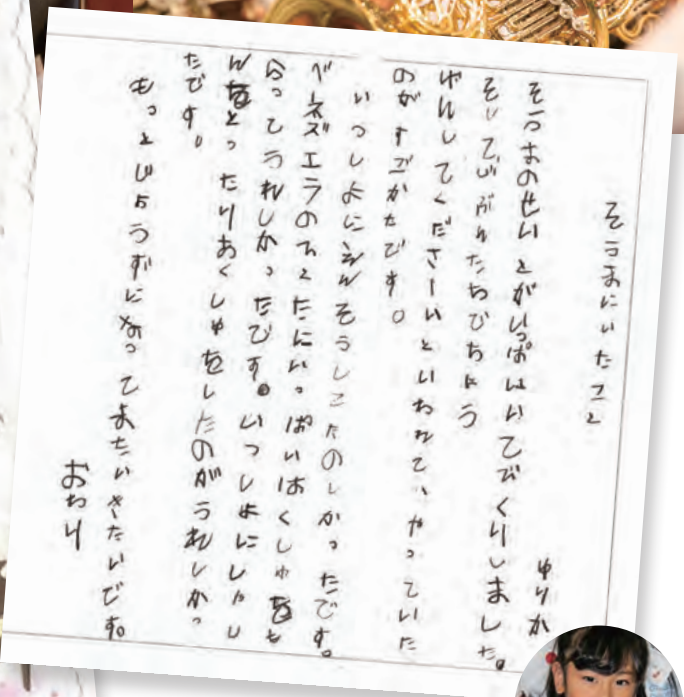 そうまにいたこと
ゆりか
そうまのせいとがいっぱいいてびくりしました。
そしてじぶんたちでちょう
せんしてくださーいといわれて、やっていた
のがすごかたです。
いっしょにえんそうしことたのしかったです。
ベーネズエラのひとたにいっぱいはくしゅをも
らってうれしかったです。いっしょにしゃし
んをとったりあくしゅをしたのがうれしかっ
たです。
もっとじょうずになってまたいきたいです。
おわり